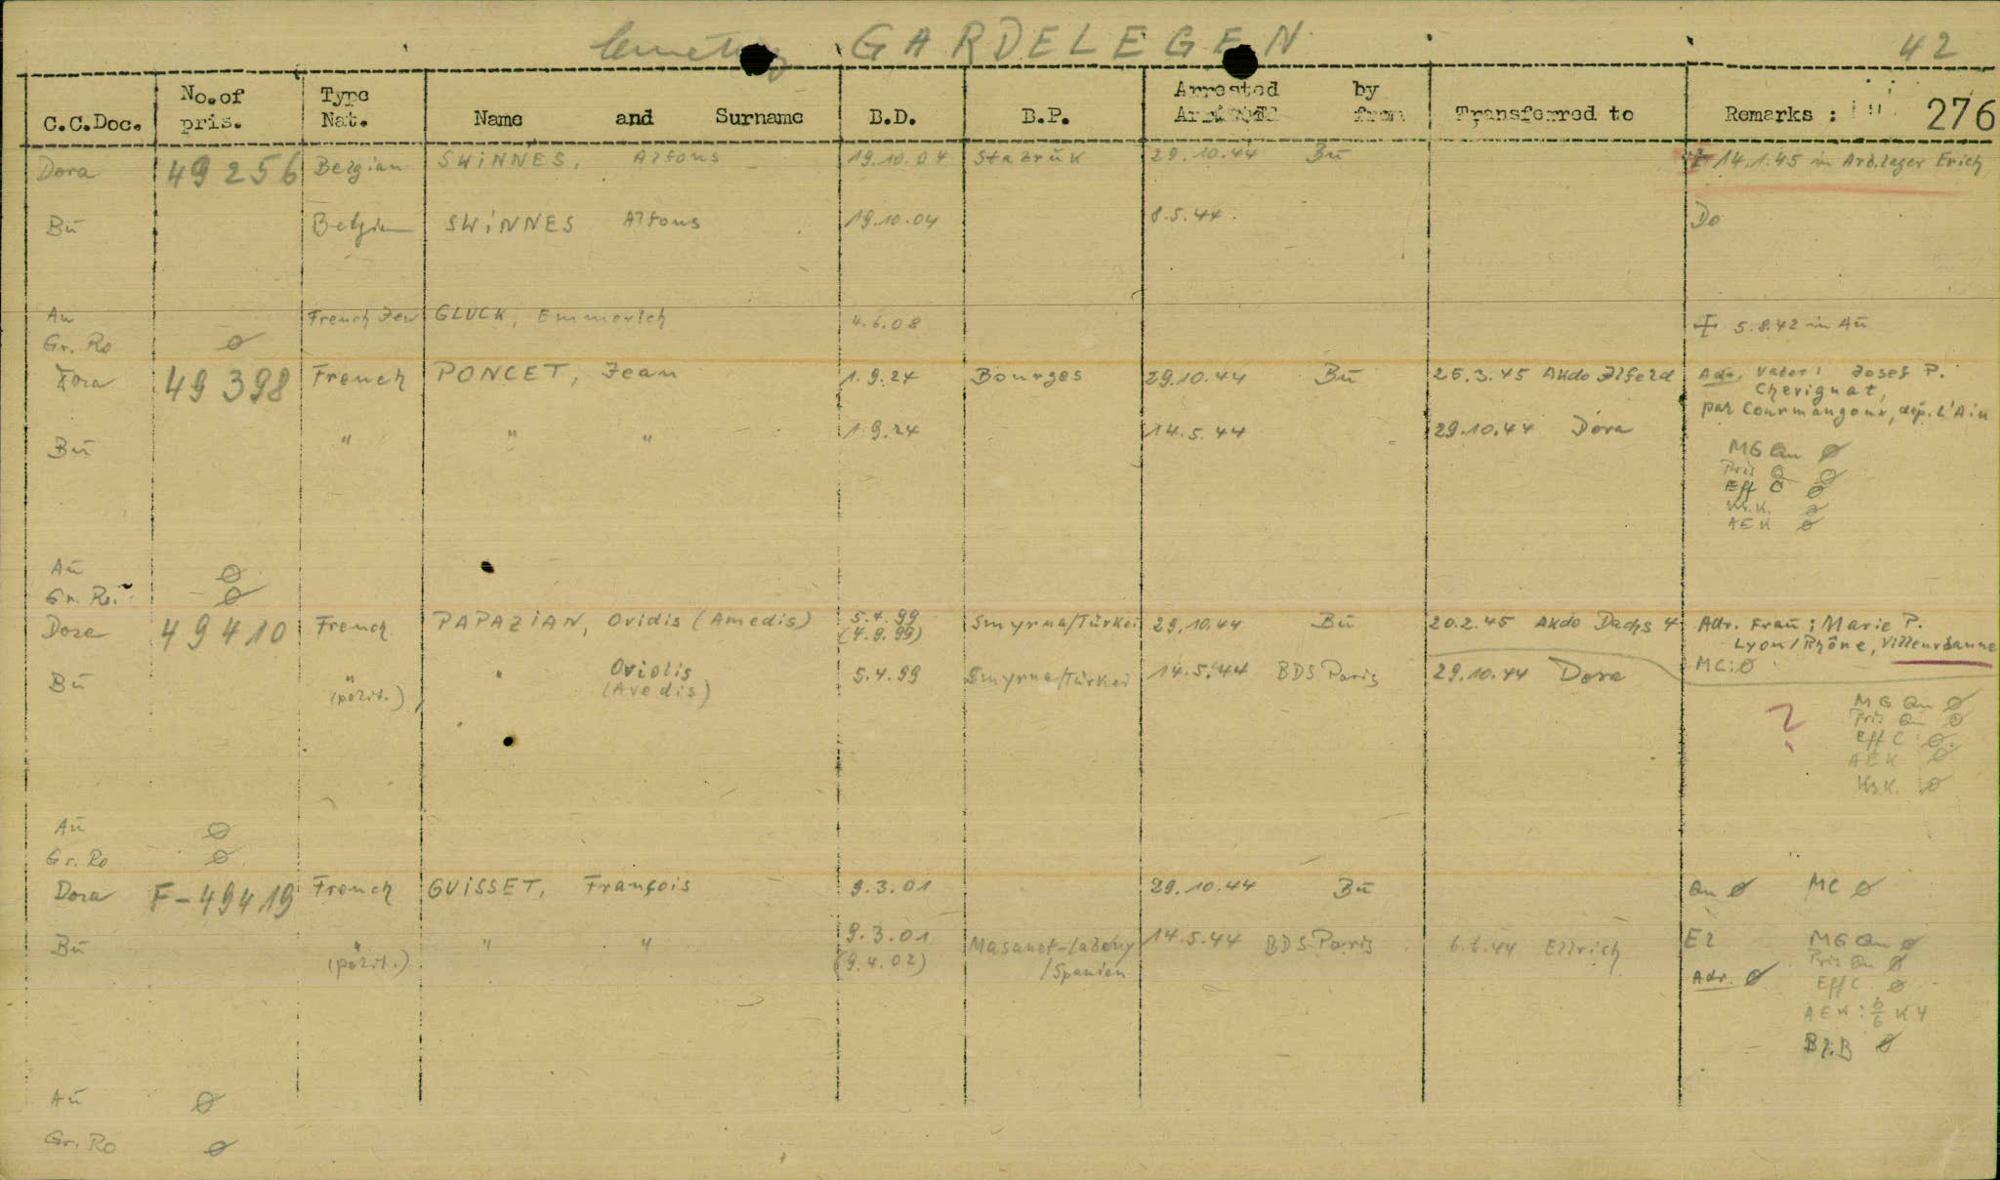 Cemetery GARDELEGEN 42
C.C.Doc. No. of pris. Type Nat. Name and Surname B.D. B.P. Arrested by from Transferred to Remarks : 276
Dora 49256 Belgian SWiNNES, Alfons 19.10.04 Stabrük 29.10.44 Bü ✝ 14.1.45 in Arb.lager Erich
Bü Belgian SWiNNES Alfons 19.10.04 8.5.44. Do
Au French Jew GLUCK, Emmerich 4.6.08 ✝ 5.8.42 in Aü
Gr. Ro ∅
Dora 49398 French PONCET, Jean 1.9.24 Bourges 29.10.44 Bü 26.3.45 AKdo Ilfeld Adr. Vater: Josef P.
Cherignat,
par Courmangoux, dép. L'Ain
Bü " " " 1.9.24 14.5.44 29.10.44 Dora
MG Qu ∅
Pris Q ∅
Eff C ∅
Kr.K. ∅
AEK ∅
Aü ∅
Gr. Ro. ∅
Dora 49410 French PAPAZiAN, Ovidis (Amedis) 5.4.99 (4.9.99) Smyrna/Türkei 29.10.44 Bü 20.2.45 AKdo Dachs 4 Adr. Frau: Marie P.
Lyon/Rhône, Villeurbanne
MC: ∅
Bü " (polit.) " Oviolis (Avedis) 5.4.99 Smyrna/Türkei 14.5.44 BDS Paris 29.10.44 Dora
? MG Qu ∅
Pris Qu ∅
Eff C ∅
AEK ∅
Kr.K. ∅
Aü ∅
Gr. Ro ∅
Dora F-49419 French GUiSSET, François 9.3.01 29.10.44 Bü Qu ∅ MC ∅
Bü " (polit.) " " 9.3.01 (9.4.02) /Spanien 14.5.44 BDS Paris 6.6.44 Ellrich El MG Qu ∅
Pris Qu ∅
Adr. ∅ Eff C ∅
AEK: 6/6 K4
Bl.B ∅
Aü ∅
Gr. Ro ∅